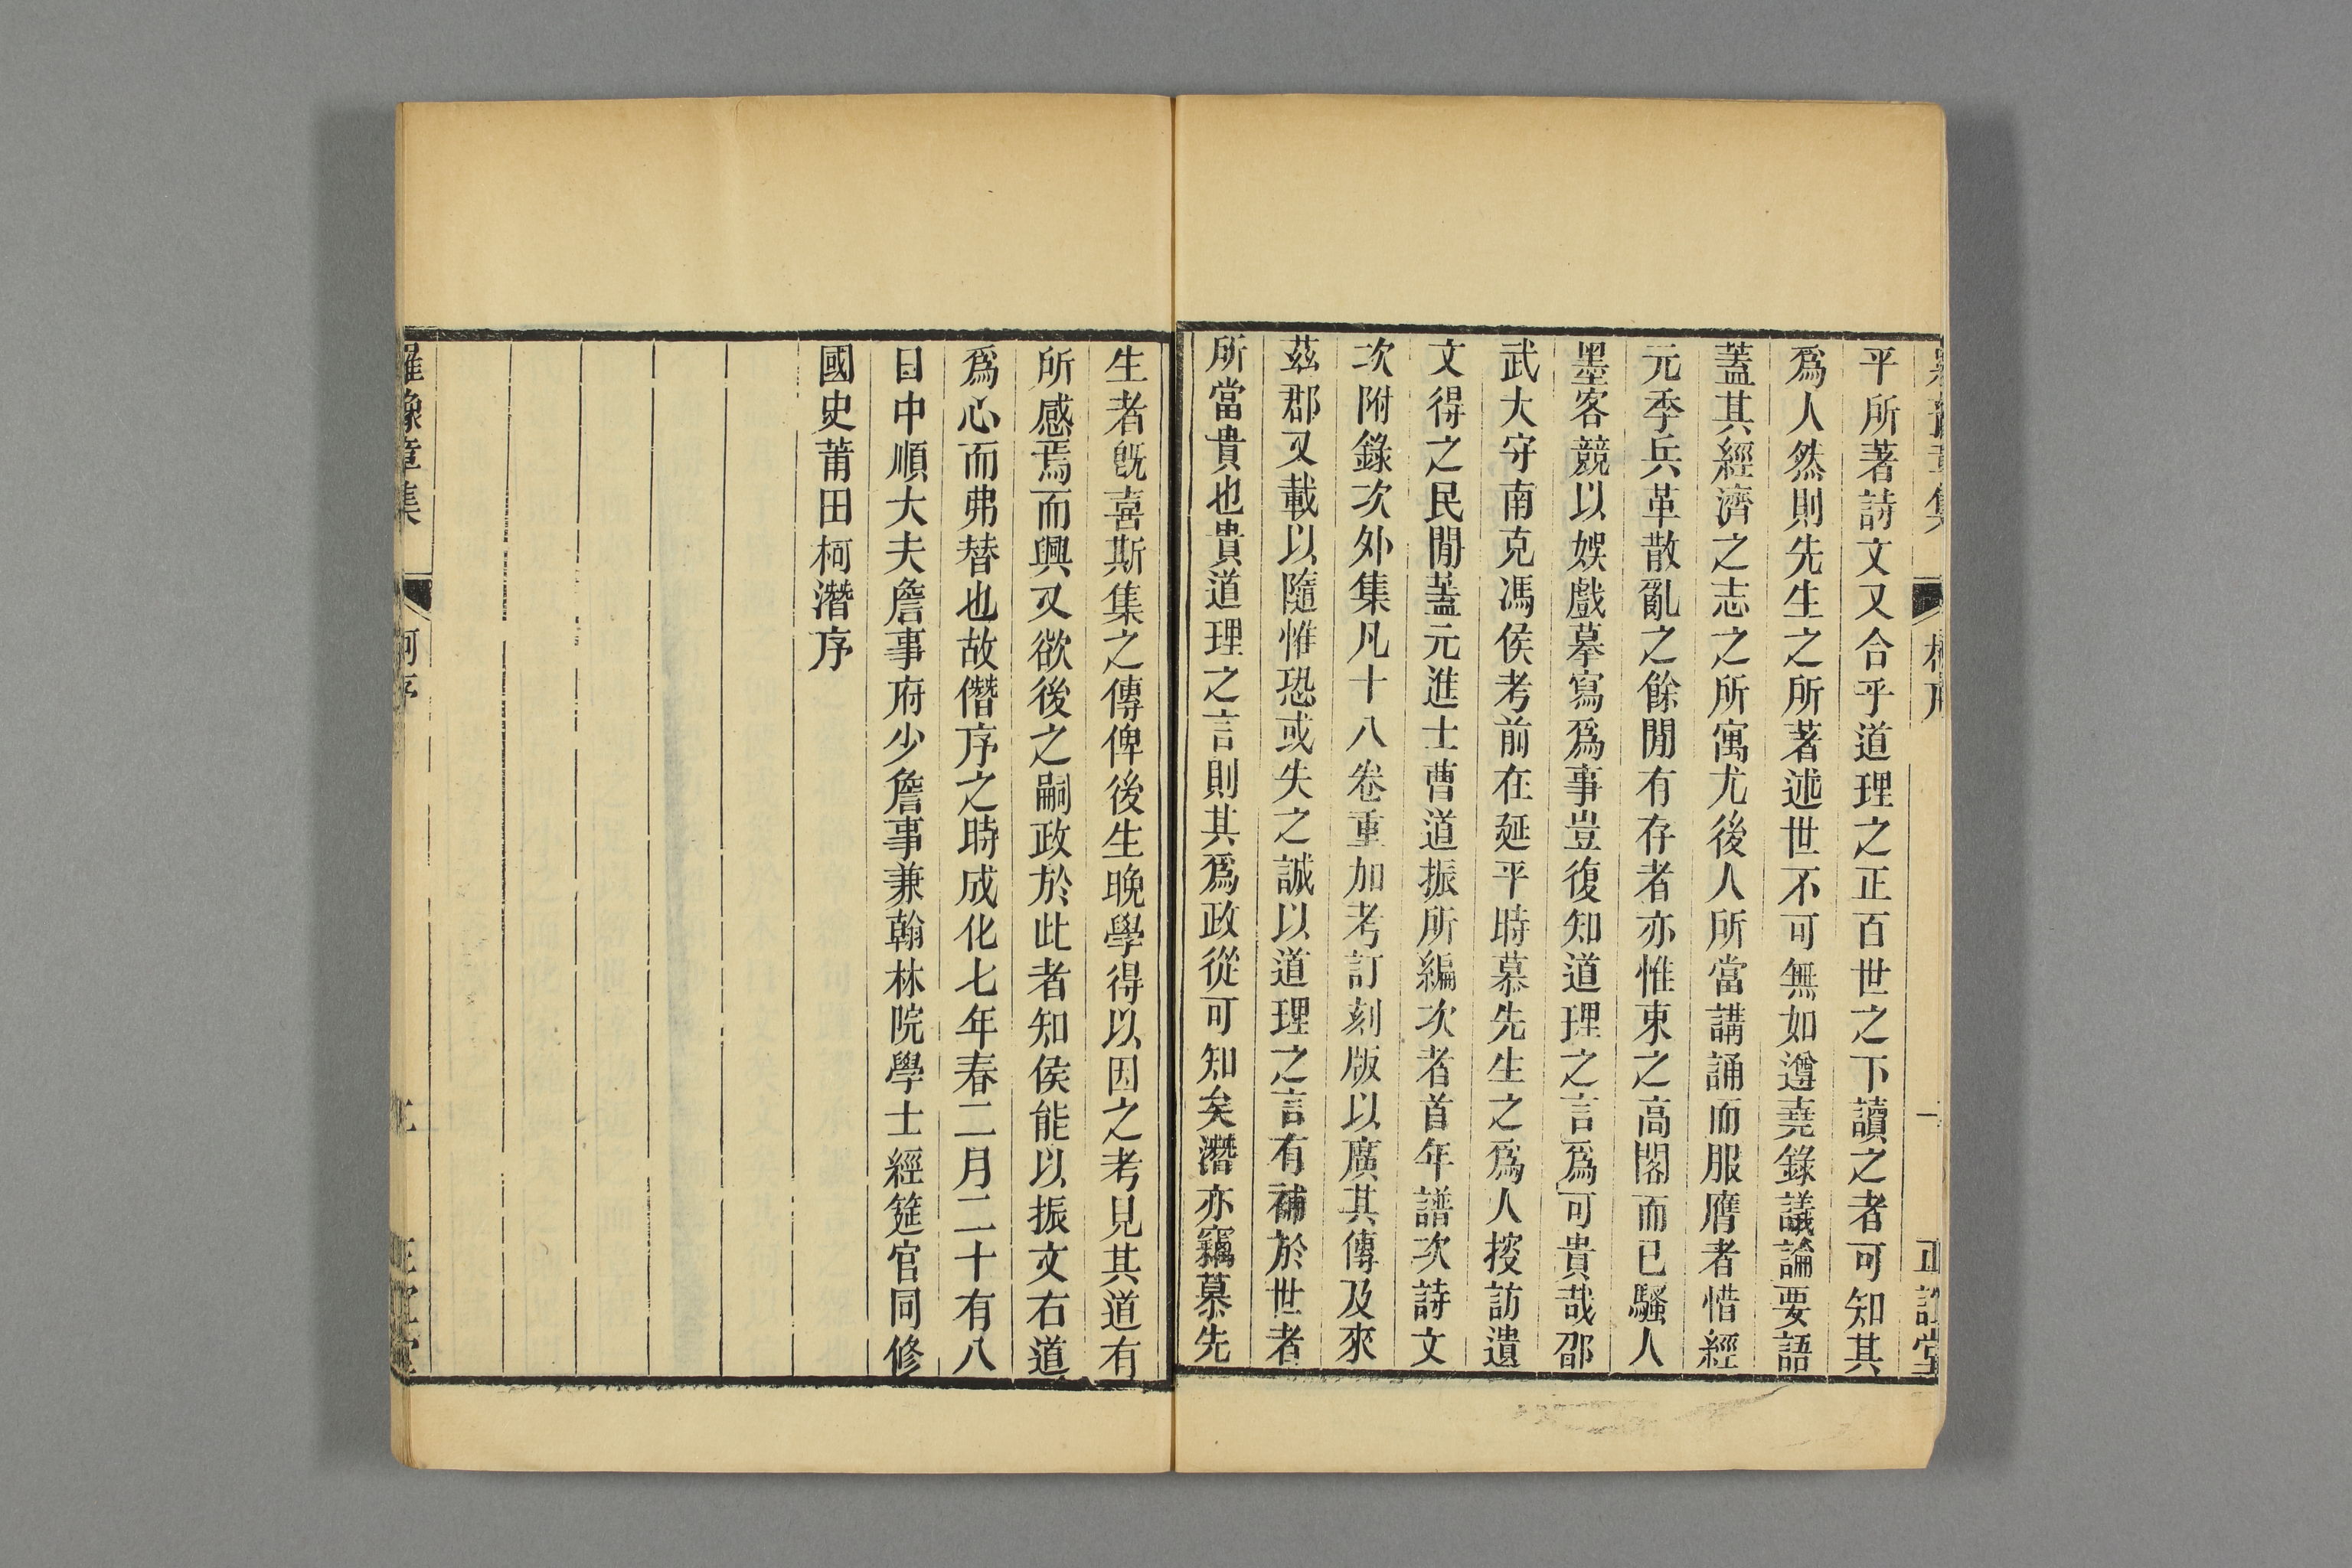 平所著詩文又合乎道理之正百世之下讀之者可知其
爲人然則先生之所著述世不可無如遵堯錄議論要語
蓋其經濟之志之所寓尤後人所當講誦而服膺者惜經
元季兵革散亂之餘閒有存者亦惟束之高閣而已騷人
墨客競以娛戲摹寫爲事豈復知道理之言爲可貴哉邵
武大守南克馮侯考前在延平時慕先生之爲人搜訪遺
文得之民閒蓋元進士曹道振所編次者首年譜次詩文
次附錄次外集凡十八卷重加考訂刻版以廣其傳及來
茲郡又載以隨惟恐或失之誠以道理之言有補於世者
所當貴也貴道理之言則其爲政從可知矣潛亦竊慕先
生者旣喜斯集之傳俾後生晚學得以因之考見其道有
所感焉而興又欲後之嗣政於此者知侯能以振文右道
爲心而弗替也故僭序之時成化七年春二月二十有八
日中順大夫詹事府少詹事兼翰林院學士經筵官同修
國史莆田柯潛序
羅豫章集
柯序